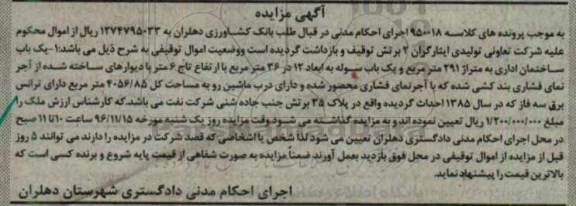 آگهی مزایده
به موجب پرونده های کلاسه ۹۵۰۰۱۸ اجرای احکام مدنی در قبال طلب بانک کشاورزی دهلران به ۱۲۷۴۷۹۵۰۳۳ ریال از اموال محکوم
علیه شرکت تعاونی تولیدی ایثارگران ۲ برتش توقیف و بازداشت گردیده است ووضعیت اموال توقیفی به شرح ذیل می باشد:۱-یک باب
ساختمان اداری به متراژ ۲۹۱ متر مربع و یک باب سوله به ابعاد ۱۲ در ۳۶ متر مربع با ارتفاع تاج ۶ متر با دیوارهای ساخته شده از آجر
نمای فشاری بند کشی شده که با آجرنمای فشاری محصور شده و دارای درب ماشین رو به مساحت کل ۴۰۵۶/۸۵ متر مربع دارای ترانس
برق سه فاز که در سال ۱۳۸۵ احداث گردیده واقع در پلاک ۲۵ برتش جنب جاده شنی شرکت نفت می باشد.که کارشناس ارزش ملک را
مبلغ ۱/۲۰۰/۰۰۰/۰۰۰ ریال تعیین نموده اند و به مزایده گذاشته می شود.وقت مزایده روز یک شنبه مورخه ۹۶/۱۱/۱۵ ساعت ۱۰ تا ۱۱ صبح
در محل اجرای احکام مدنی دادگستری دهلران تعیین می شود.لذا شخص یا اشخاصی که قصد شرکت در مزایده را دارند می توانند ۵ روز
قبل از مزایده از اموال توقیفی در محل فوق بازدید بعمل آورند.ضمناً مزایده به صورت شفاهی از قیمت پایه شروع و برنده کسی است که
بالاترین قیمت را پیشنهاد نماید.
اجرای احکام مدنی دادگستری شهرستان دهلران